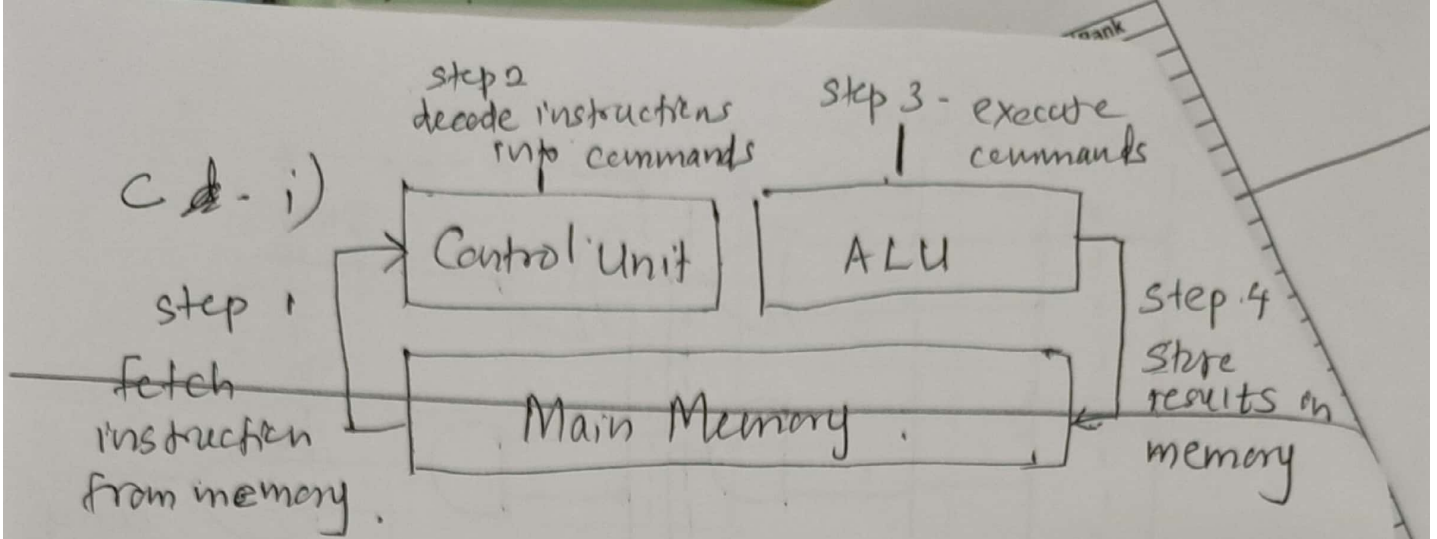 Bank
step 2
decode instructions
into commands
step 3 - execute
commands
C - i)
Control Unit
ALU
step 1
fetch
instruction
from memory.
Main Memory.
Step.4
Store
results in
memory